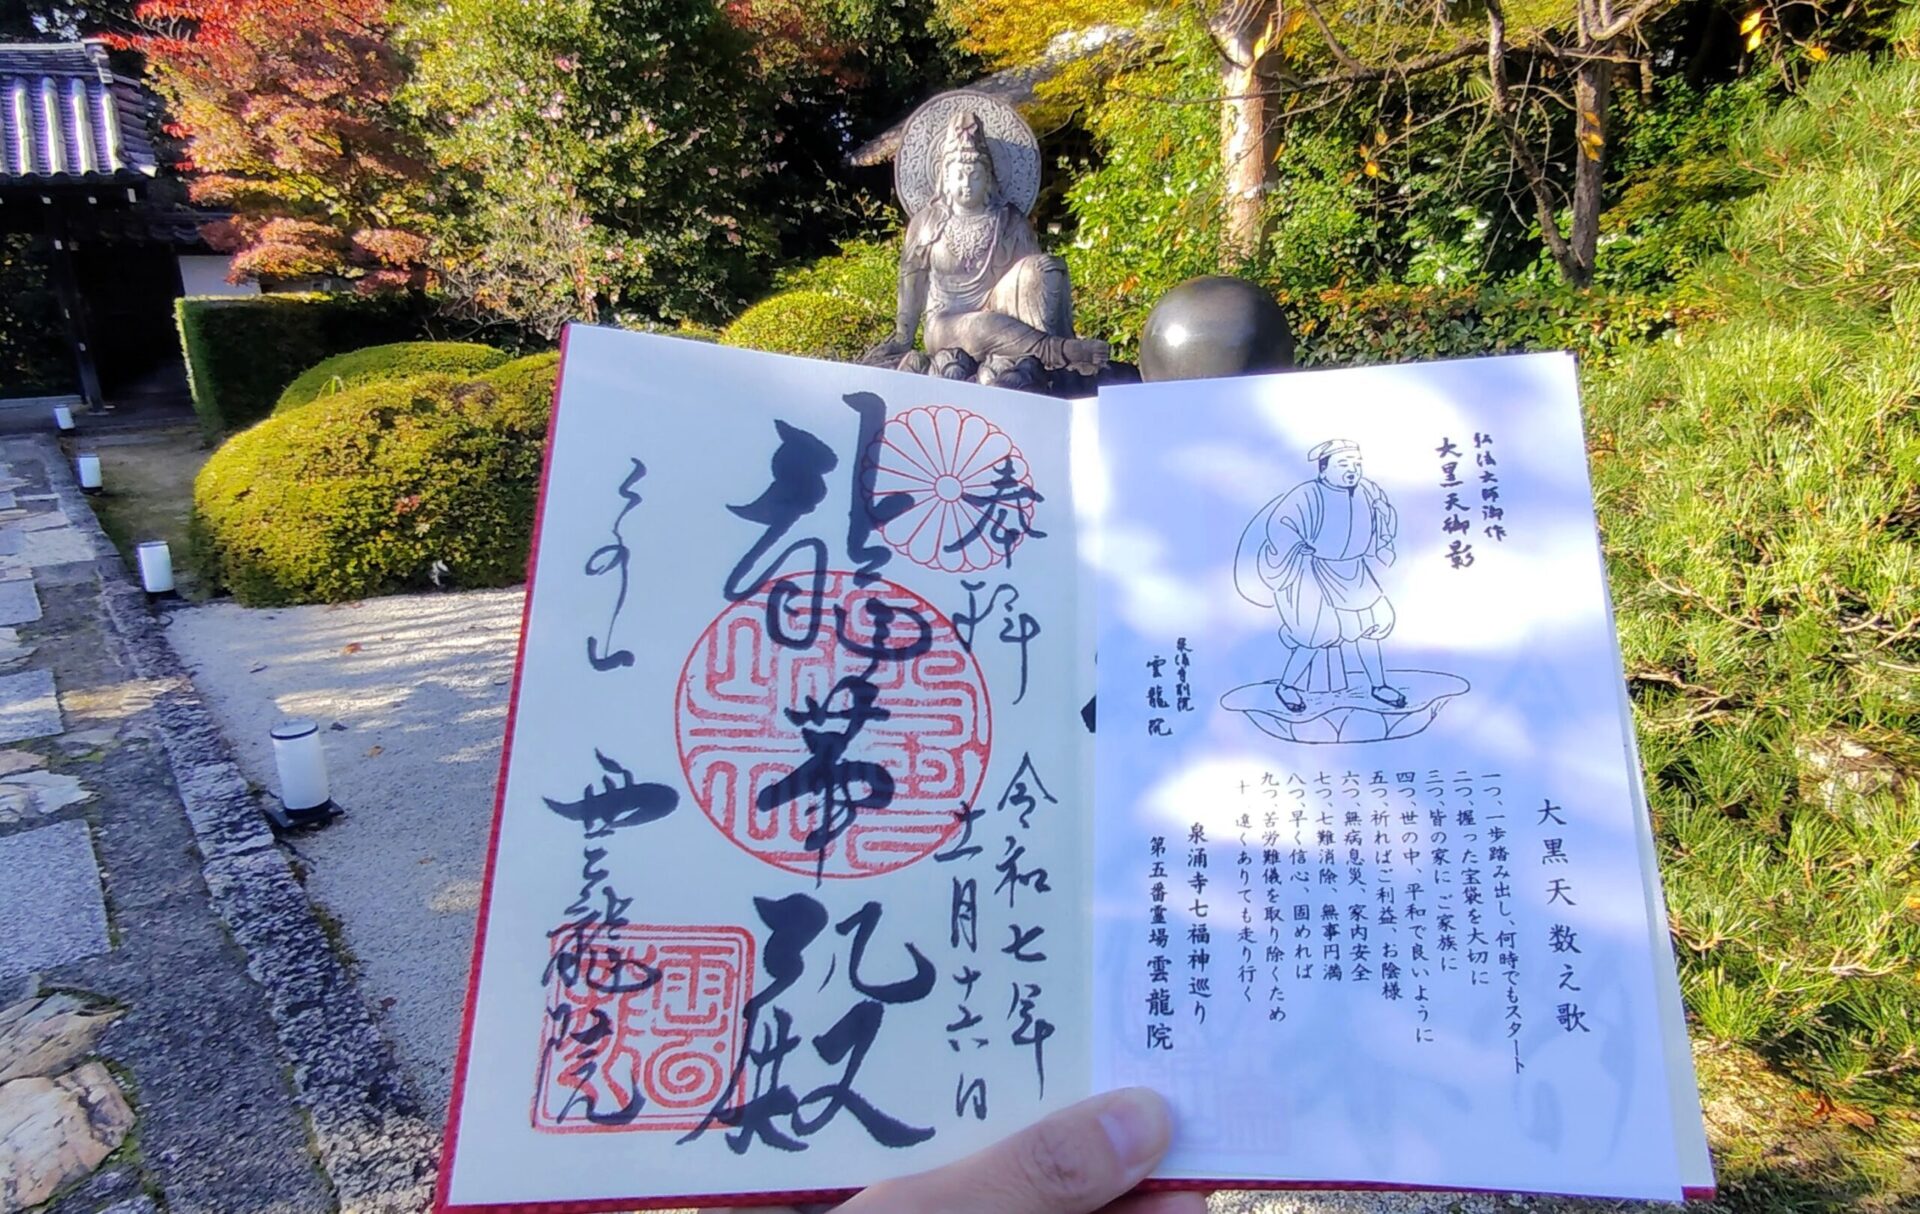 弘法大師御作
大黒天御影
泉涌寺別院
雲龍院
大黒天数え歌
一つ、一歩踏み出し、何時でもスタート
二つ、握った宝袋を大切に
三つ、皆の家にご家族に
四つ、世の中、平和で良いように
五つ、祈ればご利益、お陰様
六つ、無病息災、家内安全
七つ、七難消除、無事円満
八つ、早く信心、固めれば
九つ、苦労難儀を取り除くため
十、遠くありても走り行く
泉涌寺七福神巡り
第五番霊場雲龍院
奉拝
令和七年
十一月十六日
龍華殿
雲龍院